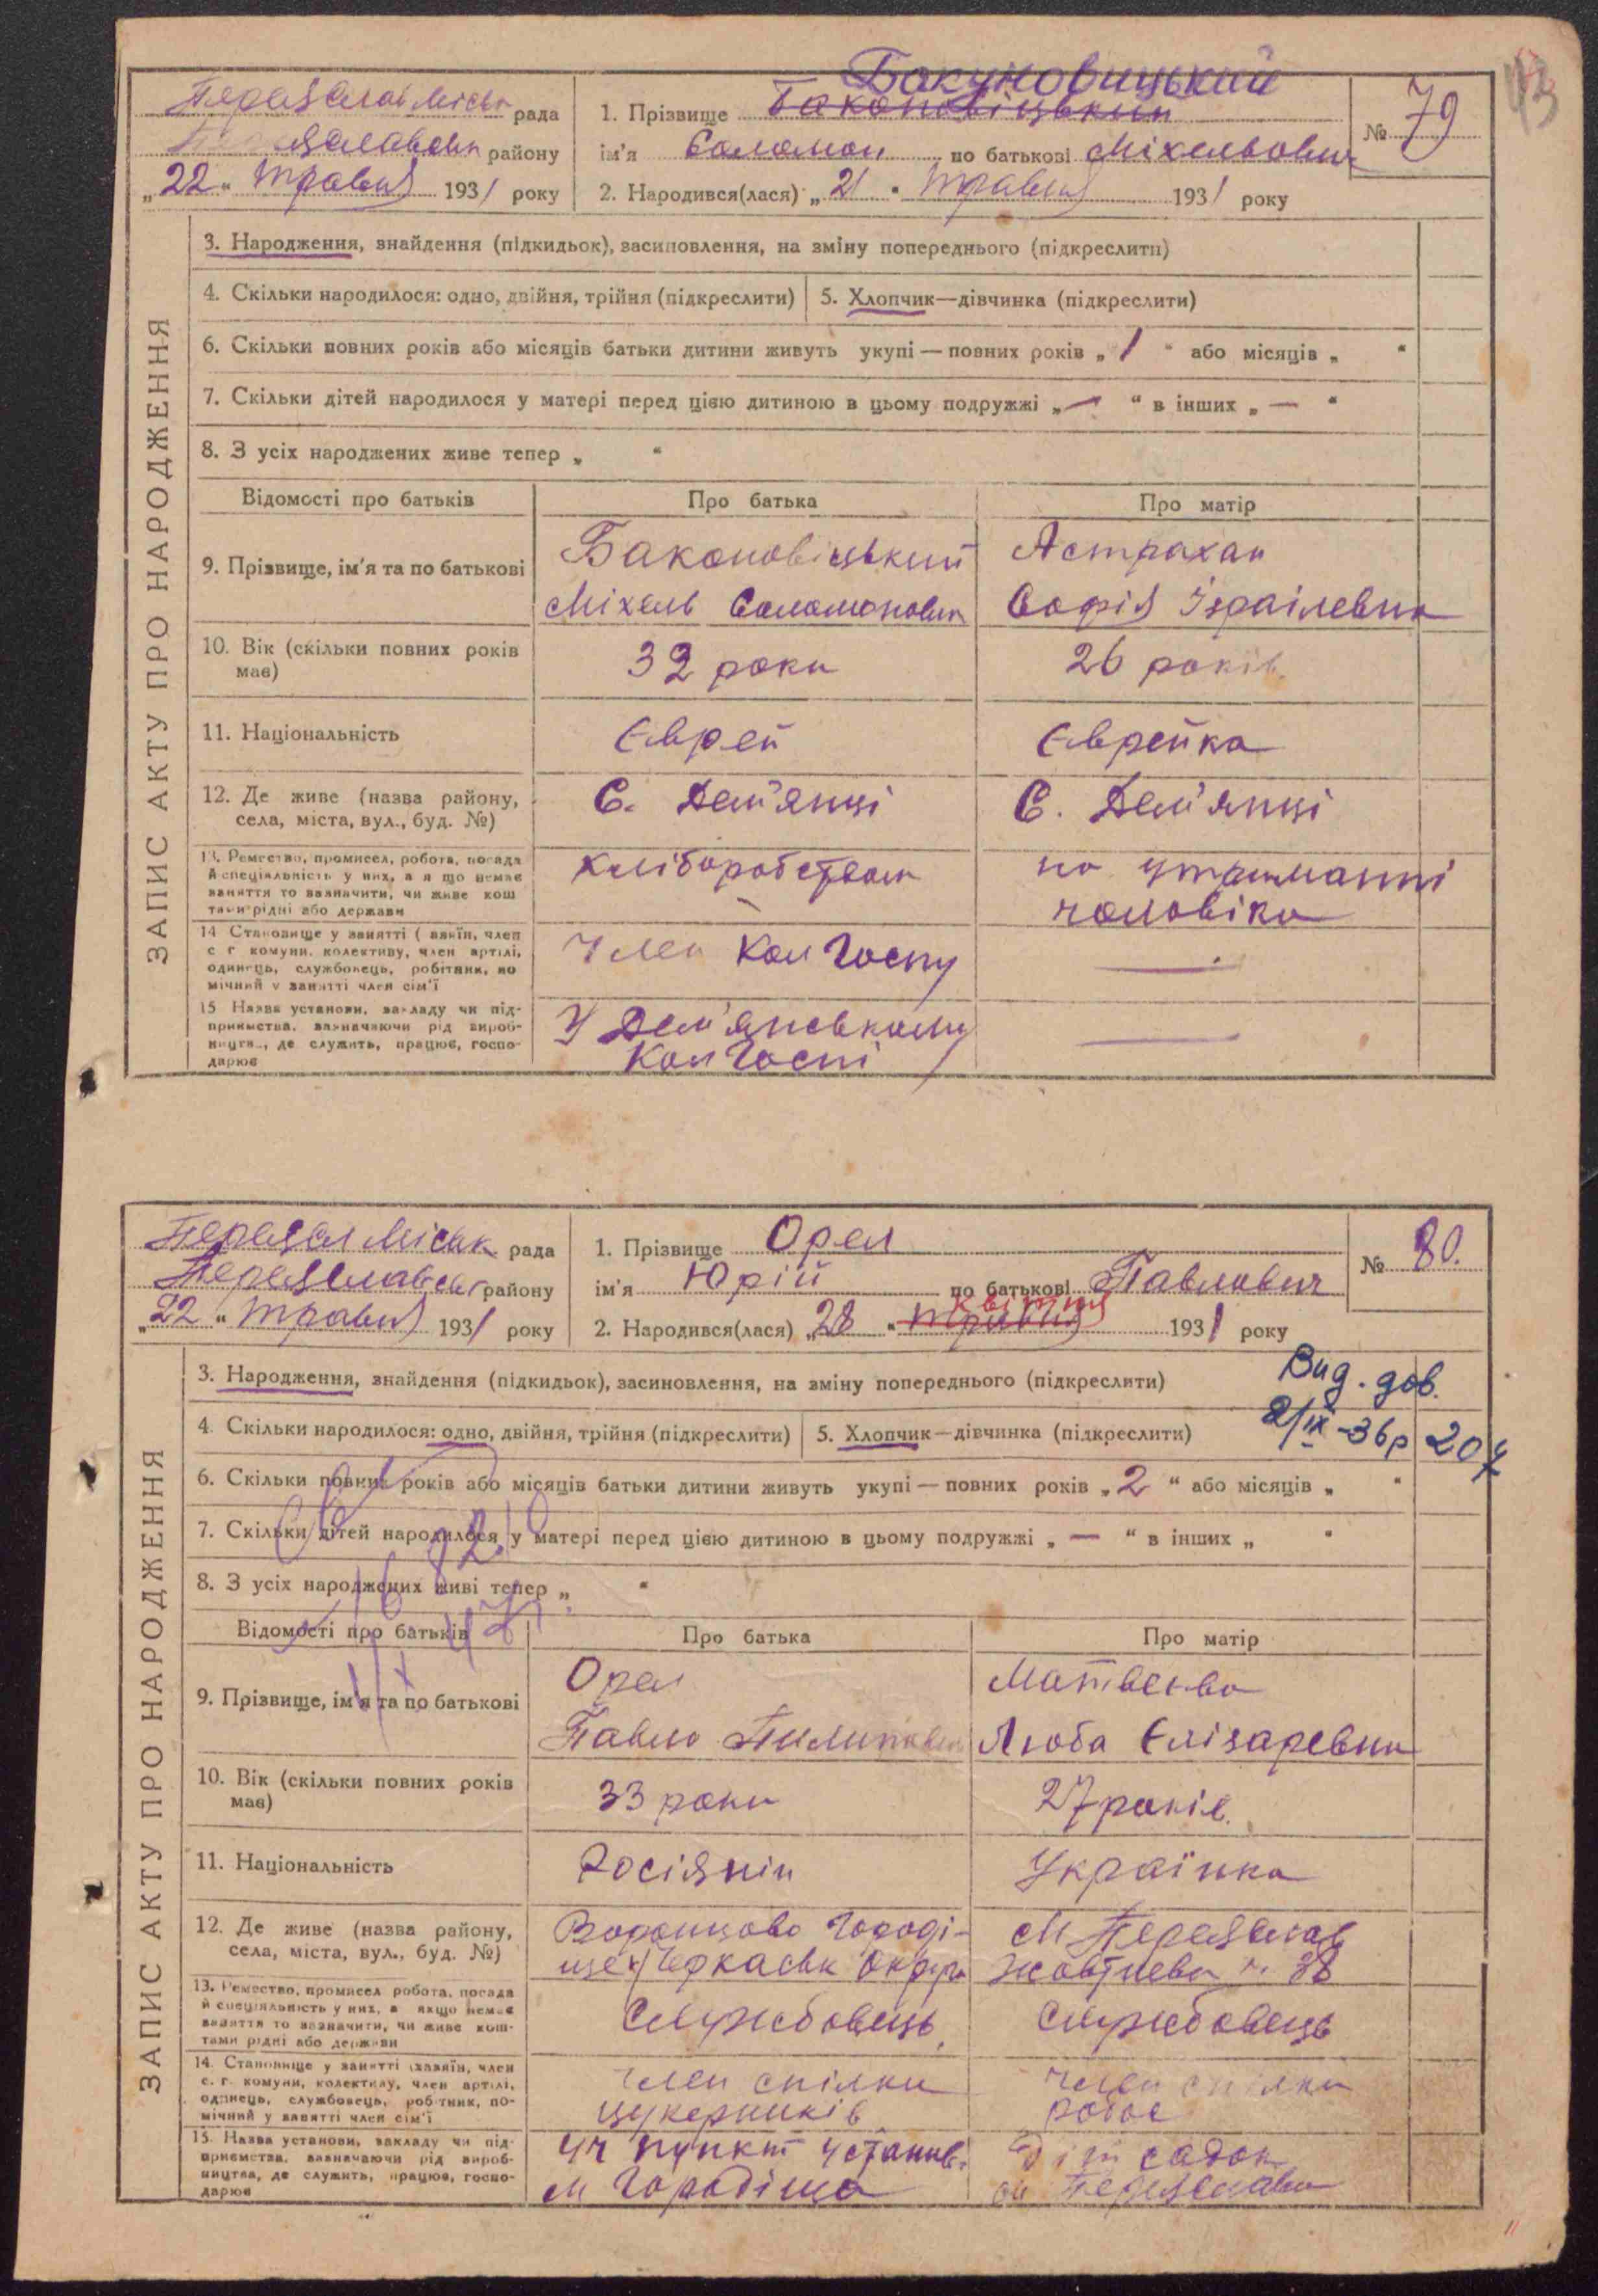 Бакуновицький
43
Переяслав Міськ рада
1. Прізвище Баконовіцький
№ 79
району
ім'я Соломон по батькові Міхельович
„22“ травня 1931 року
2. Народився(лася) „21“ травня 1931 року
ЗАПИС АКТУ ПРО НАРОДЖЕННЯ
3. Народження, знайдення (підкидьок), засиновлення, на зміну попереднього (підкреслити)
4. Скільки народилося: одно, двійня, трійня (підкреслити)
5. Хлопчик—дівчинка (підкреслити)
6. Скільки повних років або місяців батьки дитини живуть укупі — повних років „ 1 “ або місяців „ “
7. Скільки дітей народилося у матері перед цією дитиною в цьому подружжі „ — “ в інших „ — “
8. З усіх народжених живе тепер „ “
Відомості про батьків
Про батька
Про матір
9. Прізвище, ім'я та по батькові
Баконовіцький
Міхель Соломонович
Астрахан
Софія Ізраілевна
10. Вік (скільки повних років
має)
32 роки
26 років
11. Національність
Єврей
Єврейка
12. Де живе (назва району,
села, міста, вул., буд. №)
С. Дем'янці
С. Дем'янці
13. Ремество, промисел, робота, посада
й спеціяльність у них, а якщо немає
заняття то зазначити, чи живе кош
тами рідні або держави
хліборобством
на утриманні
чоловіка
14 Становище у занятті (хазяїн, член
с г комуни, колективу, член артілі,
одинець, службовець, робітник, по
мічний у занятті член сім'ї
Член Колгоспу
15 Назва установи, закладу чи під-
приємства, зазначаючи рід вироб-
ництва, де служить, працює, госпо-
дарює
У Дем'янському
Колгоспі
Переясл Міськ рада
1. Прізвище Орел
№ 80.
Переяславськ району
ім'я Юрій по батькові Павлович
квітня
„22“ травня 1931 року
2. Народився(лася) „28“ травня 1931 року
ЗАПИС АКТУ ПРО НАРОДЖЕННЯ
3. Народження, знайдення (підкидьок), засиновлення, на зміну попереднього (підкреслити)
Вид. дов.
4. Скільки народилося: одно, двійня, трійня (підкреслити)
5. Хлопчик—дівчинка (підкреслити)
2/IX-36р
6. Скільки повних років або місяців батьки дитини живуть укупі — повних років „ 2 “ або місяців „ “
7. Скільки дітей народилося у матері перед цією дитиною в цьому подружжі „ — “ в інших „ “
8. З усіх народжених живі тепер „ “
Відомості про батьків
Про батька
Про матір
9. Прізвище, ім'я та по батькові
Орел
Павло Пилипович
Матвєєва
Люба Єлізаревна
10. Вік (скільки повних років
має)
33 роки
27 років.
11. Національність
Росіянін
Українка
12. Де живе (назва району,
села, міста, вул., буд. №)
Воронцово Городі-
ще Черкаськ Округи
м Переяслав
Жовтнева ч. 38
13. Ремество, промисел робота, посада
й спеціяльність у них, а якщо немає
заняття то зазначити, чи живе кош-
тами рідні або держави
Службовець
Службовець
14. Становище у занятті (хазяїн, член
с. г. комуни, колективу, член артілі,
одинець, службовець, робітник, по-
мічний у занятті член сім'ї
член спілки
цукерників
член спілки
робос
15. Назва установи, закладу чи під-
приємства, зазначаючи рід вироб-
ництва, де служить, працює, госпо-
дарює
пункт
м Городіща
Діт садок
Переяслави